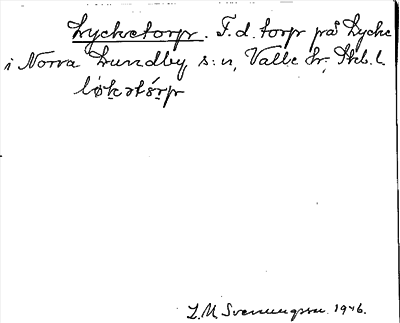 Lycketorp. F. d. torp på Lycke
i Norra Lundby s:n, Valle hr, Skb. l.
løk̬ətɷ́rp
L. M. Svenungsson 1946.